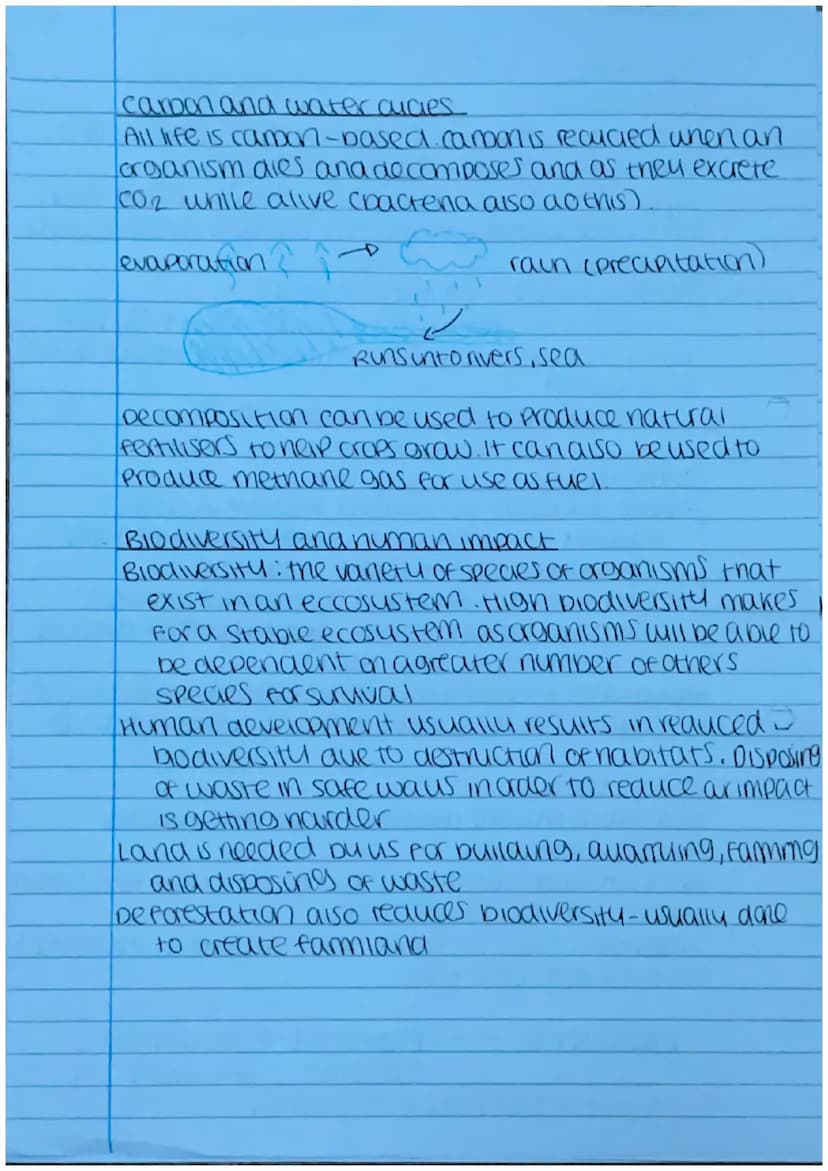 Carbon and water cycles
All life is carbon-based. Carbon is recycled when an
organism dies and decomposes and as they excrete
CO2 while alive (bacteria also do this).
evaporation
rain (precipitation)
Runs into rivers, sea
Decomposition can be used to produce natural
fertilisers to help crops grow. It can also be used to
produce methane gas for use as fuel.
Biodiversity and human impact
Biodiversity: the variety of species of organisms that
exist in an eccosystem. High biodiversity makes
for a stable ecosystem as organisms will be able to
be dependent on a greater number of others
species for survival
Human development usually results in reduced
biodiversity due to destruction of habitats. Disposing
of waste in safe ways in order to reduce or impact
is getting harder
Land is needed by us for building, quarrying, farming
and disposing of waste
Deforestation also reduces biodiversity - usually done
to create farmland